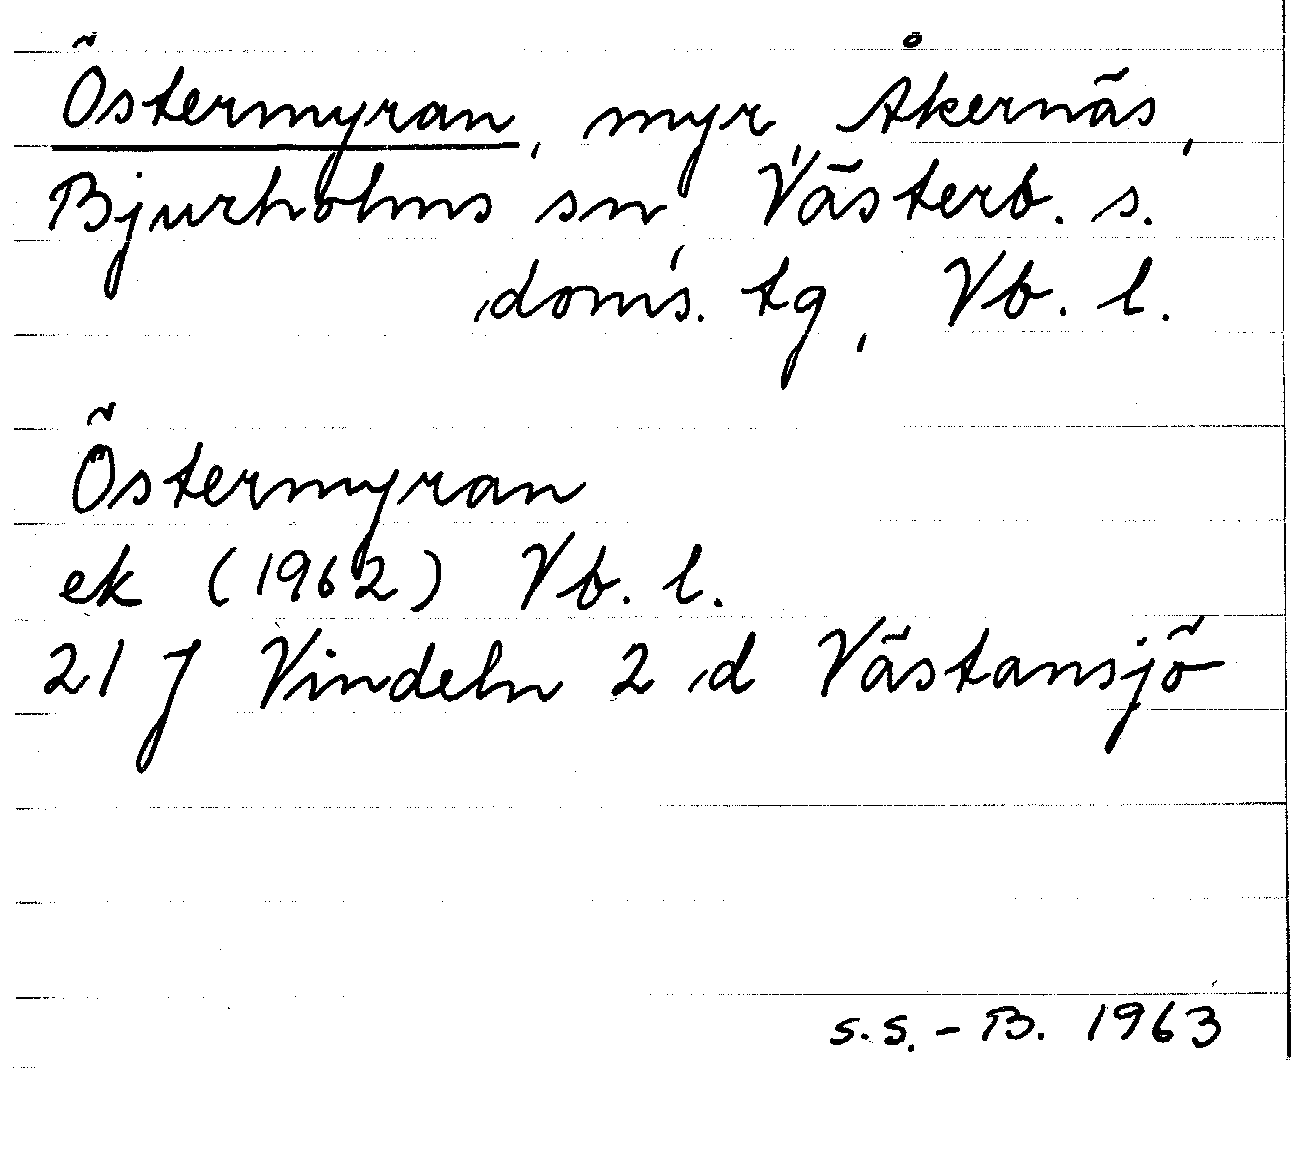 Östermyran, myr, Åkernäs,
Bjurholms sn, Västerb. s.
doms. tg, Vb. l.
Östermyran
ek (1962) Vb. l.
21 J Vindeln 2 d Västansjö
s.s.-B. 1963